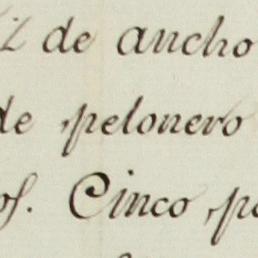 de ancho
de pelonero
Cinco